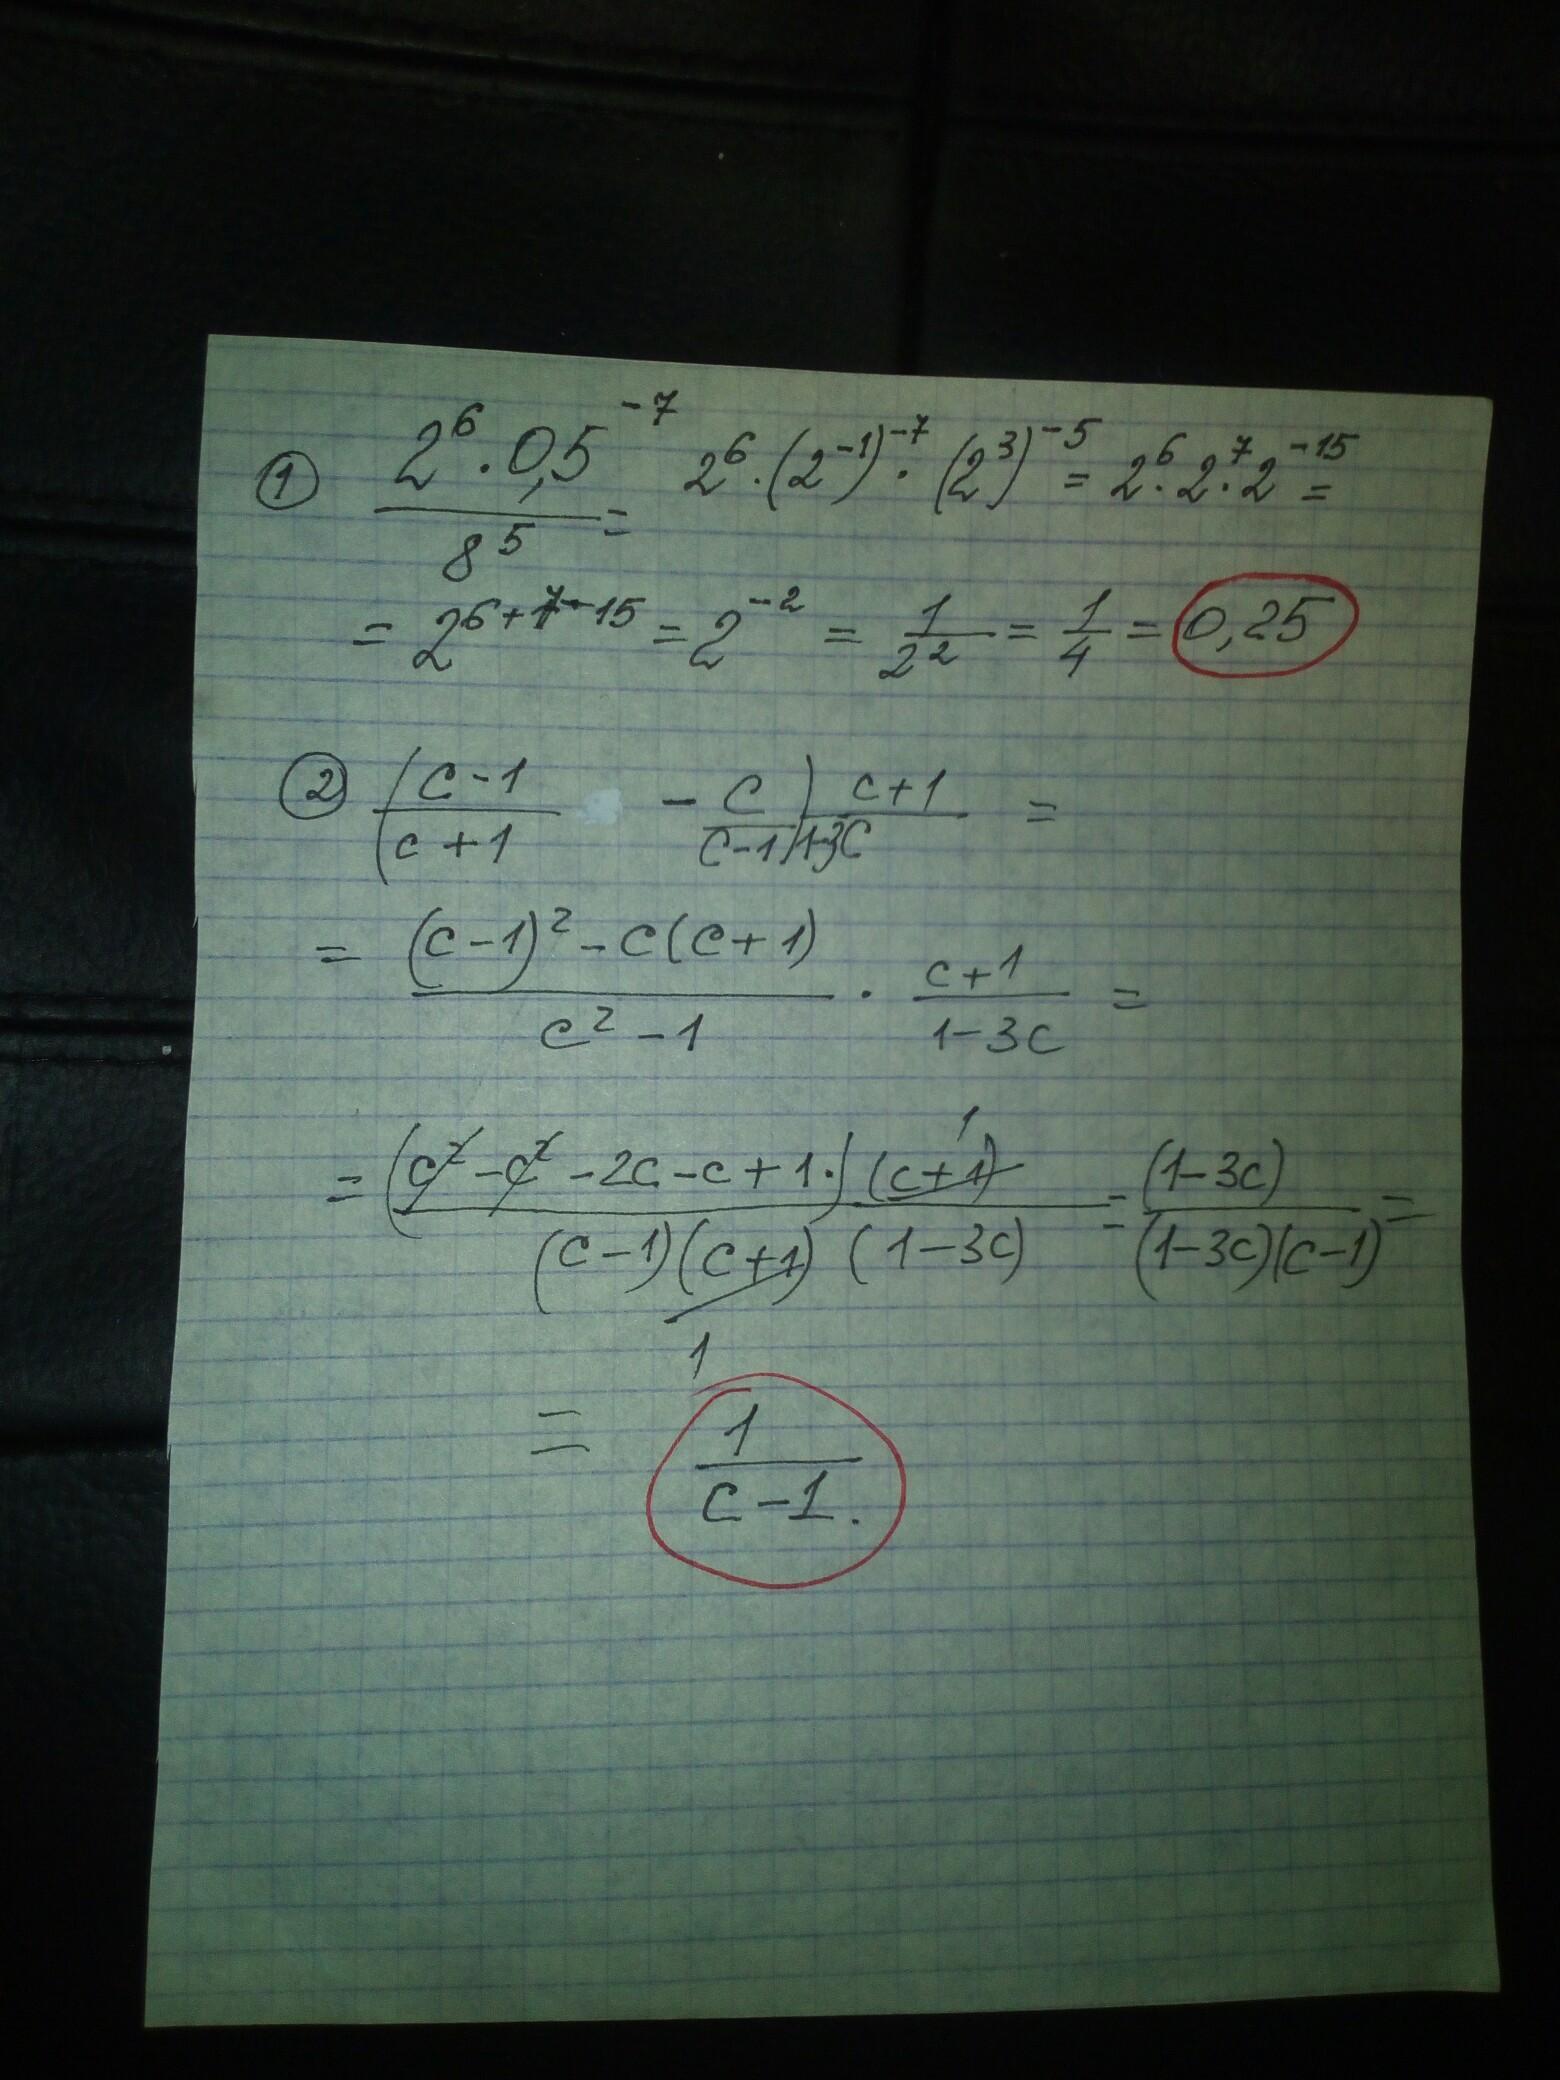 ① (2⁶ · 0,5⁻⁷)/8⁵ = 2⁶ · (2⁻¹)⁻⁷ · (2³)⁻⁵ = 2⁶ · 2⁷ · 2⁻¹⁵ =
= 2⁶⁺⁷⁻¹⁵ = 2⁻² = 1/2² = 1/4 = 0,25
② ((c-1)/(c+1) - c/(c-1)) (c+1)/(1-3c) =
= ((c-1)² - c(c+1))/(c² - 1) · (c+1)/(1-3c) =
= (c² - c² - 2c - c + 1·)(c+1) 1/((c-1)(c+1)(1-3c)) = (1-3c)/((1-3c)(c-1)) =
1
= 1/(c-1).